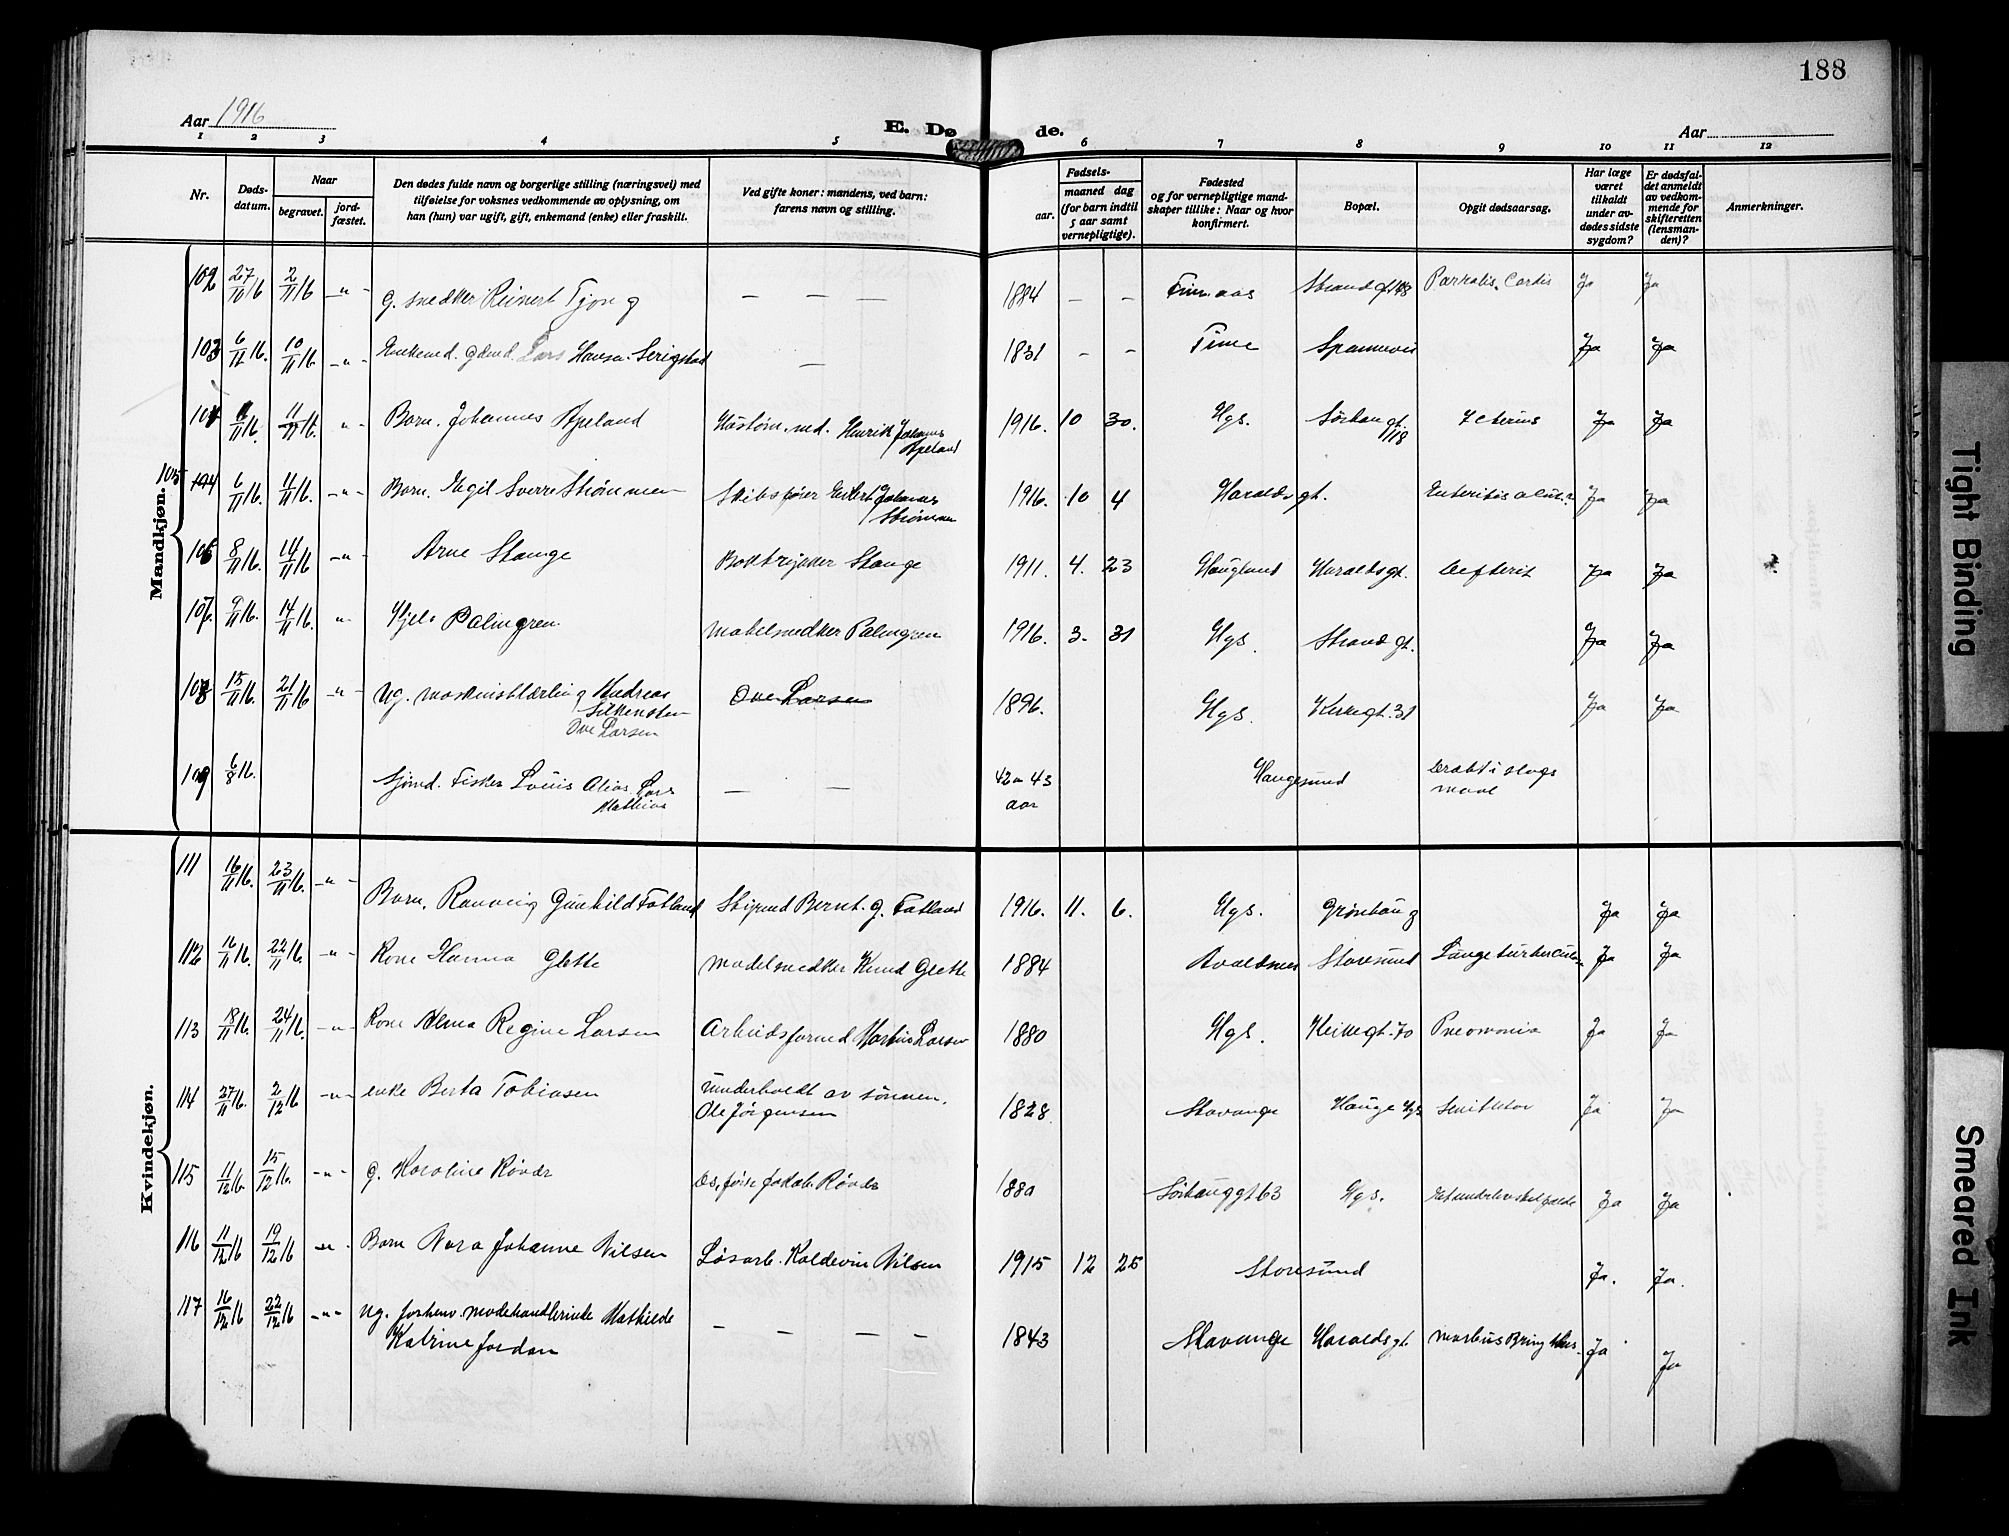 188
Aar 1916
E. Dø de.
Aar
1 2 3 4 5 6 7 8 9 10 11 12
Nr.
Døds-
datum.
Naar
begravet.
jord-
fæstet.
Den dødes fulde navn og borgerlige stilling (næringsvei) med
tilføielse for voksnes vedkommende av oplysning, om
han (hun) var ugift, gift, enkemand (enke) eller fraskilt.
Ved gifte koner: mandens, ved barn:
farens navn og stilling.
Fødsels-
aar.
maaned dag
(for barn indtil
5 aar samt
vernepligtige).
Fødested
og for vernepligtige mand-
skaper tillike: Naar og hvor
konfirmert.
Bopæl.
Opgit dødsaarsag.
Har læge
været
tilkaldt
under av-
dødes sidste
sygdom?
Er dødsfal-
det anmeldt
av vedkom-
mende for
skifteretten
(lensman-
den)?
Anmerkninger.
Mandkjøn.
102 27/10 16 2/11 16 -"- g. snedker Reinert Tjong — — — 1884 — — Strandgt 148 Paralis. Cordis Ja Ja
103 6/11 16. 10/11 16. -"- Enkemd. gdmd. Lars Hansen Serigstad — 1831 - - Time Ja Ja
104 11/11 16. -"- Barn. Johannes Apeland Henrik Johannes
Apeland 1916. 10 30. Hgs. Sørhaugt.
118 Icterus Ja Ja
105 6/11 16. 11/11 16. -"- Barn. Sverre Strømmen Skibsfører Johannes
Strømmen 1916. 10 4 Haraldsgt. Enteritis acut. Ja Ja
106 8/11 16. 14/11 16 -"- Arne Stange Boktrykker Stange 1911. 4. 23 Haugland Haraldsgt. Defterit Ja Ja
107 9/11 16. 14/11 16. -"- Palmgren Møbelsnedker Palmgren 1916. 3. 31 Hgs. Strandgt. Ja Ja
108 15/11 16. 21/11 16 -"- Ug. maskinistlærling Andreas
Ove Larsen
Ove Larsen 1896. Hgs. Kirkegt. 31 Ja Ja
109 6/8 16. Sjømd. Fisker Louis Alias Lars
Mathias — — 42 a 43
aar Haugesund Dræbt i slags
maal
Kvindekjøn.
111 16/11 16. 23/11 16. -"- Barn. Ranveig Gunhild Fatland Bernt. G. Fatland 1916. 11. 6. Hgs. Grønhaug Ja Ja
112 16/11 16. 22/11 16. -"- Kone Hanna Glette Knud Glette 1884 Avaldsnes Storesund Ja Ja
113 18/11 16. 24/11 16. -"- Kone Alma Regine Larsen Arbeidsformd Martin Larsen 1880 Hgs. Kirkegt. 70 Pneomonia Ja Ja
114 27/11 16. 2/12 16 -"- enke Berta Tobiasen Underholdt av sønnen.
Ole Jørgensen 1828. Stavanger Hauge Hgs Ja Ja
115 11/12 16. 15/12 16. -"- g. Karoline Røvær Jakob Røvær 1880 Sørhauggt 63 Hgs. Ja Ja
116 11/12 16 19/12 16 -"- Barn Nora Johanne Nilsen Løsarb. Koldevin Nilsen 1915 12 25 Storesund Ja. Ja.
117 16/12 16 22/12 16 -"- Ug. forhenv. modehandlerinde Mathilde
Katrine Jordan — — — — 1843 Stavanger Haraldsgt. Ja Ja
Tight Binding
Smeared Ink